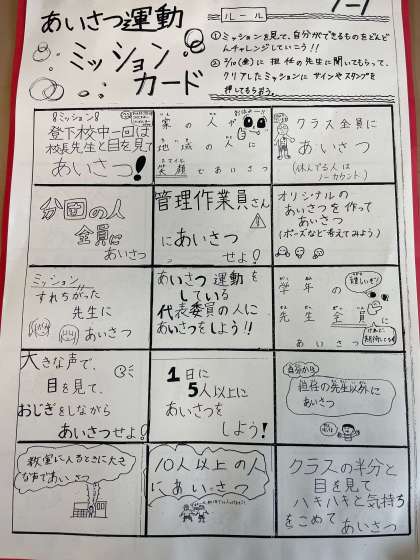 あいさつ運動
ミッション
カード
ルール
①ミッションを見て、自分ができるものをどんど
んチャレンジしていこう!!
②2/10(金)に担任の先生に聞いてもらって、
クリアしたミッションにサインやスタンプを
押してもらおう。
ミッション
登下校中一回は
校長先生と目を見て
あいさつ!
家の人が
地域の人に
スマイル
笑顔であいさつ
クラス全員に
あいさつ
(休んでる人は
ノーカウント)
分団の人
全員に
あいさつ
管理作業員さん
にあいさつ
せよ!
オリジナルの
あいさつを作って
あいさつ
(ポーズなど考えてみよう)
ミッション
すれちがった
先生に
あいさつ
あいさつ運動を
している
代表委員の人に
あいさつをしよう!!
学年の
先生全員に
あいさつ
大きな声で、
目を見て、
おじぎをしながら
あいさつせよ!
1日に
5人以上に
あいさつを
しよう!
自分から
担任の先生以外に
あいさつ
教室に入るときに大き
な声であいさつ
10人以上の人
にあいさつ
クラスの半分と
目を見て
ハキハキと気持ち
をこめてあいさつ